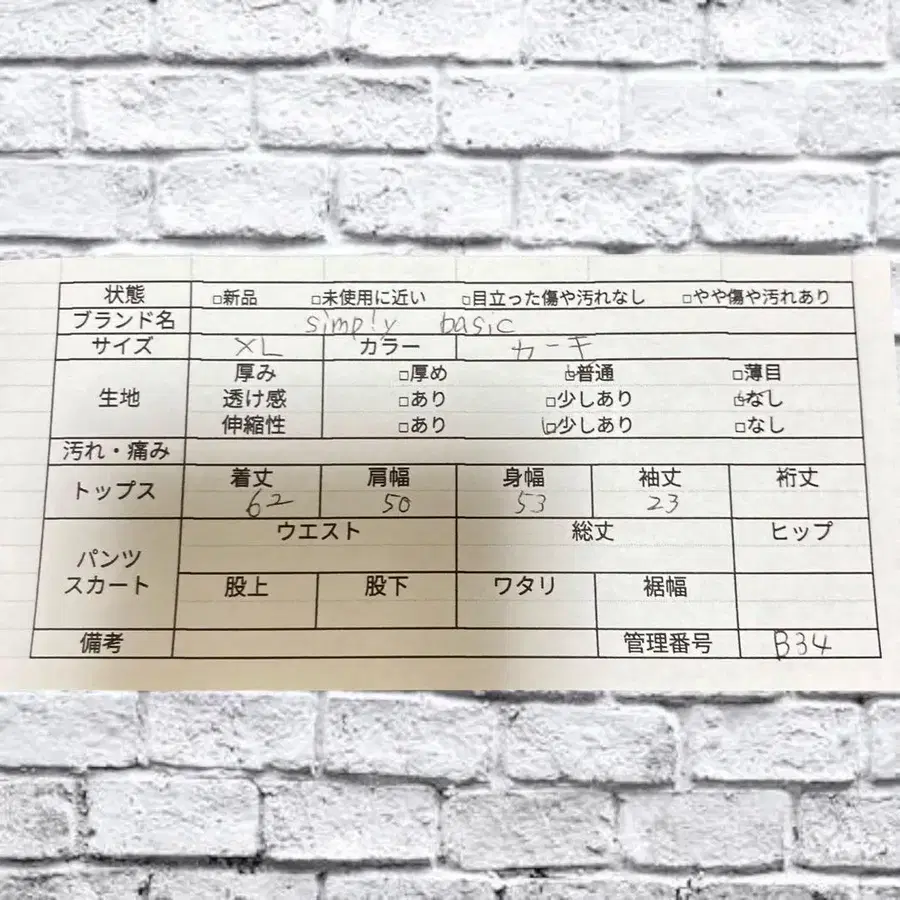 状態 □新品 □未使用に近い □目立った傷や汚れなし □やや傷や汚れあり
ブランド名 simply basic
サイズ XL カラー カーキ
生地 厚み □厚め □普通 □薄目
透け感 □あり □少しあり □なし
伸縮性 □あり □少しあり □なし
汚れ・痛み
トップス 着丈 肩幅 身幅 袖丈 裄丈
62 50 53 23
パンツ スカート ウエスト 総丈 ヒップ
股上 股下 ワタリ 裾幅
備考 管理番号 B34